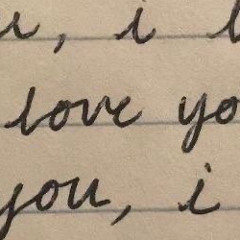 u, i l
love yo
you, i